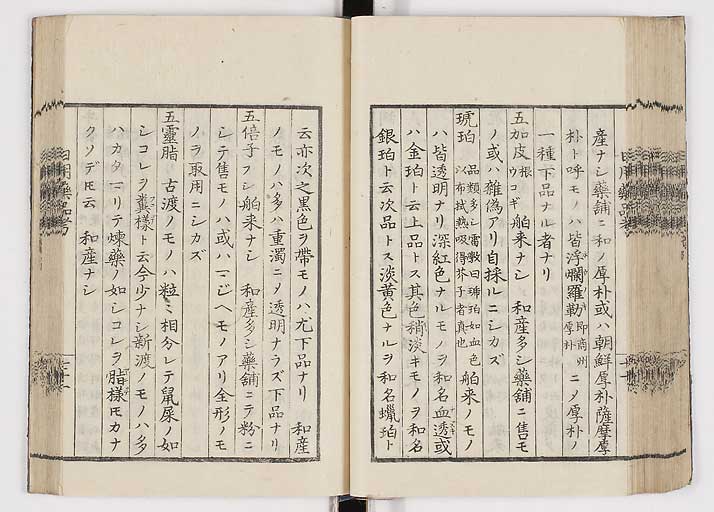 産ナシ藥舗ニ和ノ厚朴或ハ朝鮮厚朴薩摩厚
朴ト呼モノハ皆浮爛羅勒即商州厚朴ニメ厚朴ノ
一種下品ナル者ナリ
五加皮根ウコギ舶来ナシ 和産多シ藥舗ニ售モ
ノ或ハ雜偽アリ自採ルニシカズ
琥珀品類多シ雷斆曰琥珀如血色以布拭熱吸得芥子者真也舶来ノモノ
ハ皆透明ナリ深紅色ナルモノヲ和名血透或
ハ金珀ト云上品トス其色稍淡キモノヲ和名
銀珀ト云次品トス淡黄色ナルヲ和名蠟珀ト
云亦次之黒色ヲ帶モノハ尤下品ナリ 和産
ノモノハ多ハ重濁ニメ透明ナラズ下品ナリ
五倍子フシ舶来ナシ 和産多シ藥舗ニテ粉ニ
シテ售モノハ或ハマジヘモノアリ全形ノモ
ノヲ取用ニシカズ
五靈脂 古渡ノモノハ粒〻相分レテ鼠屎ノ如
シコレヲ糞樣ト云今少ナシ新渡ノモノハ多
ハカタマリテ煉藥ノ如シコレヲ脂樣𪜈カナ
クソデ𪜈云 和産ナシ